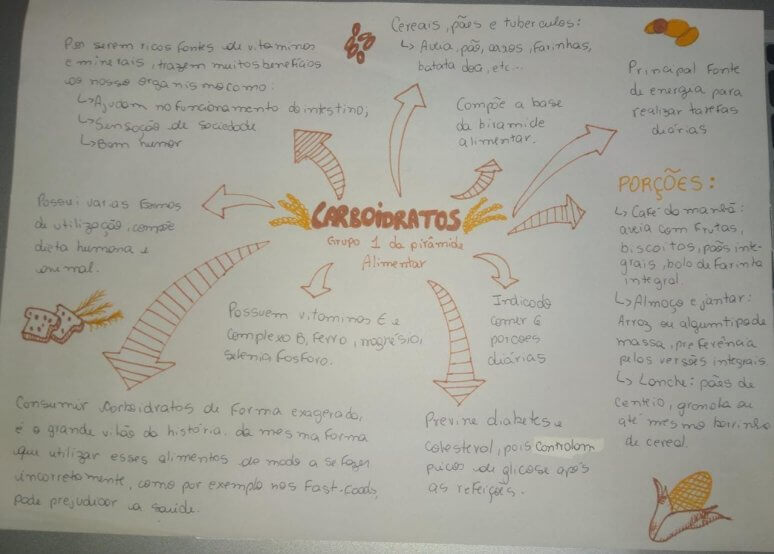 Por serem ricos fontes de vitaminas
e minerais, trazem muitos benefícios
ao nosso organismo como:
↳ Ajudam no funcionamento do intestino;
↳ Sensação de sociedade
↳ Bom humor
Cereais, pães e tuberculos:
↳ Aveia, pão, arroz, farinhas,
batata doce, etc...
Compõe a base
da piramide
alimentar.
Principal fonte
de energia para
realizar tarefas
diárias
CARBOIDRATOS
Grupo 1 da pirâmide
Alimentar
Possui varias formas
de utilização, compõe
dieta humana e
animal.
Possuem vitaminas E e
complexo B, ferro, magnésio,
selenio fosforo.
Indicado
comer 6
porcoes
diárias
PORÇÕES:
↳ Café da manhã:
aveia com frutas,
biscoitos, pães inte-
grais, bolo de farinha
integral.
↳ Almoço e jantar:
Arroz ou algum tipo de
massa, preferência
pelas versões integrais.
↳ Lanche: pães de
centeio, granola ou
até mesmo barrinha
de cereal.
Consumir carboidratos de forma exagerada,
é o grande vilão da história. da mesma forma
que utilizar esses alimentos de modo a se fazer
incorretamente, como por exemplo nos Fast-foods,
pode prejudicar a saúde.
Previne diabetes e
colesterol, pois controlam
picos de glicose após
as refeições.